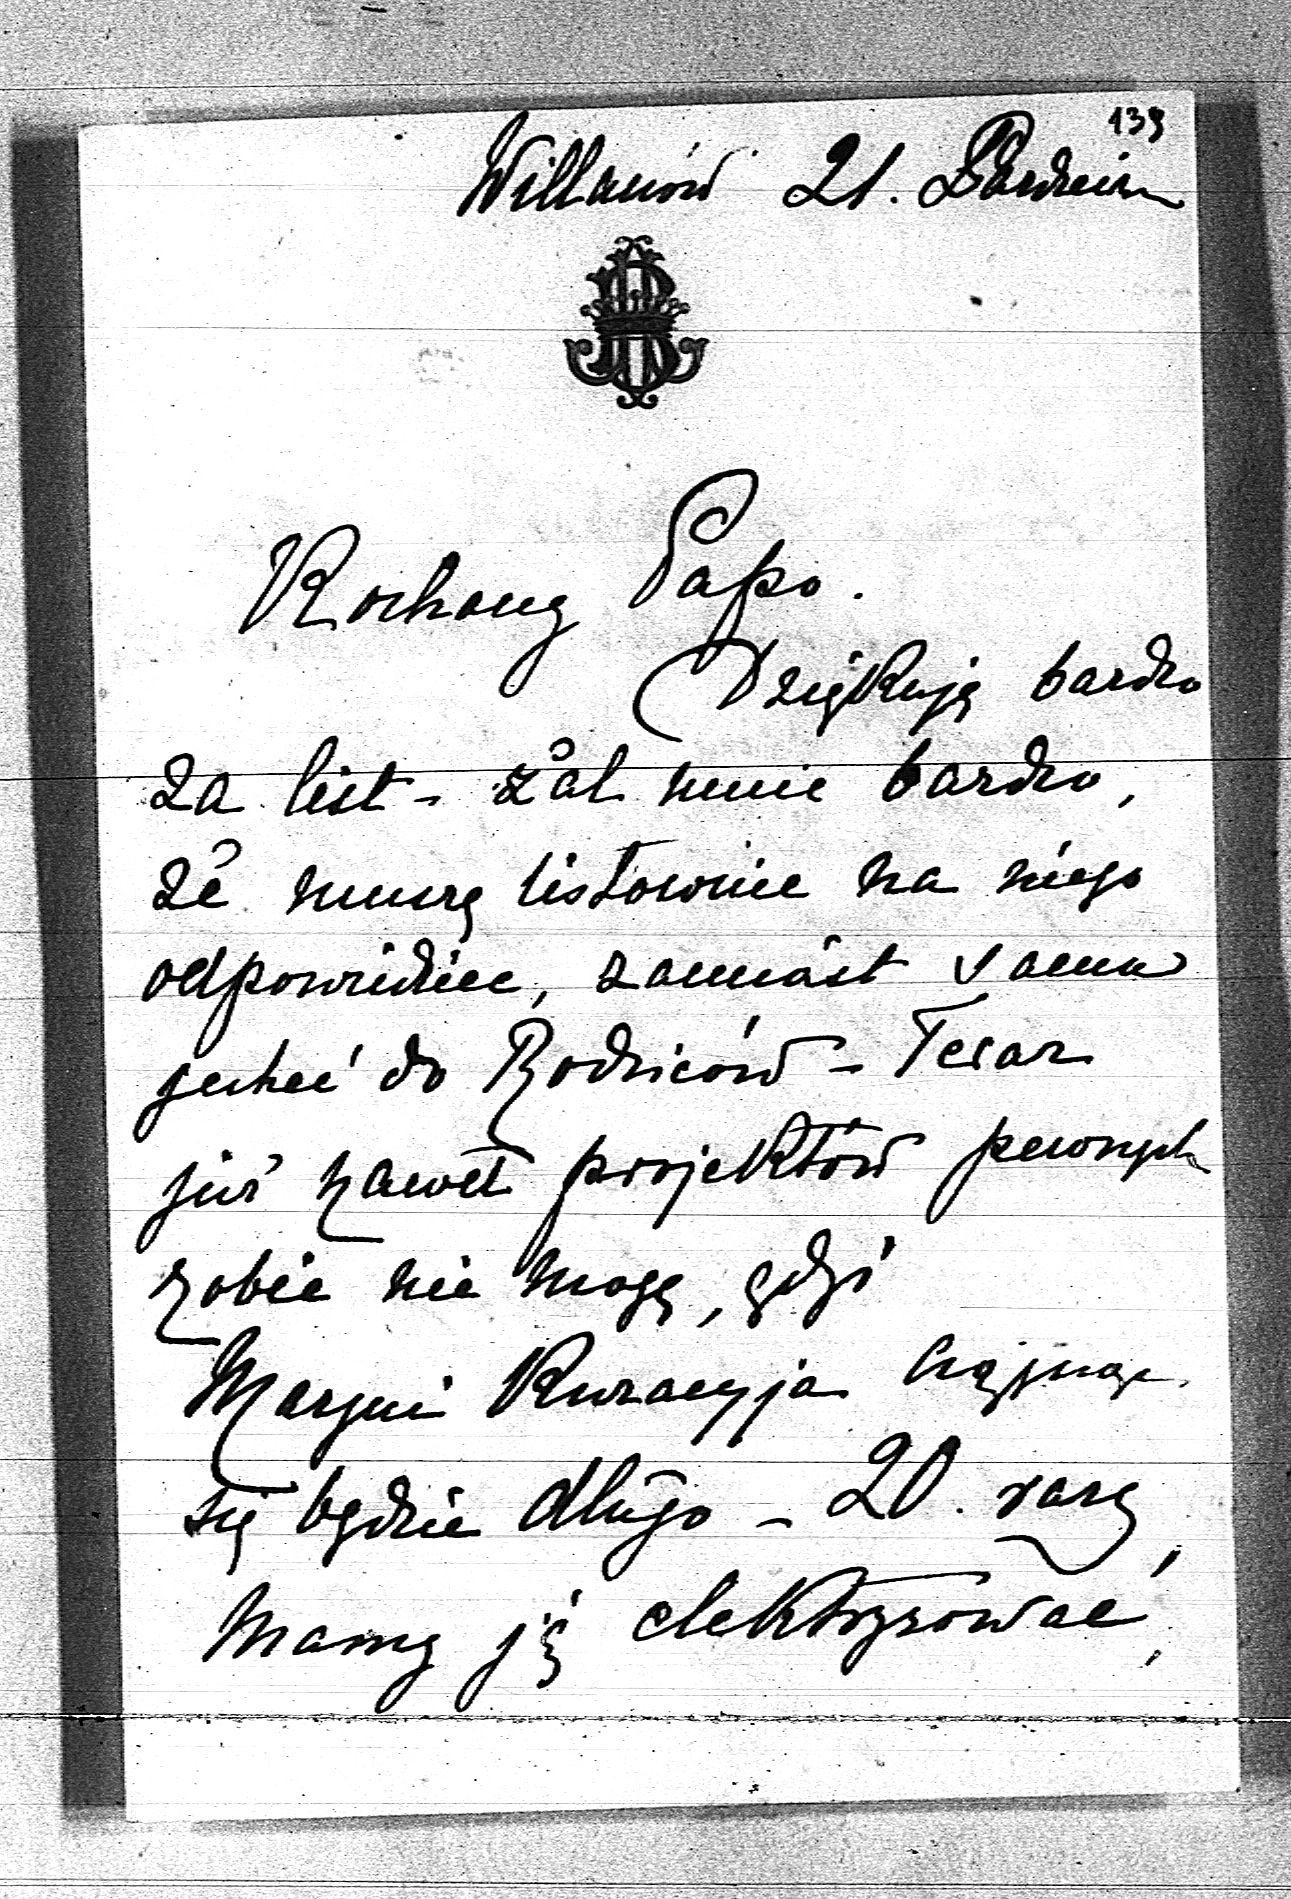 139
Willanów 21. Październ
Kochany Papo.
Dziękuję bardzo
za list - żal mnie bardzo,
że muszę listownie na niego
odpowiedziec, zamiast sama
jechać do Rodziców - Teraz
już nawet projektów pewnych
robić nie mogę, gdyż
Maryni Kuracyja ciągnąć
się będzie długo - 20. razy
mamy ją elektryzować,